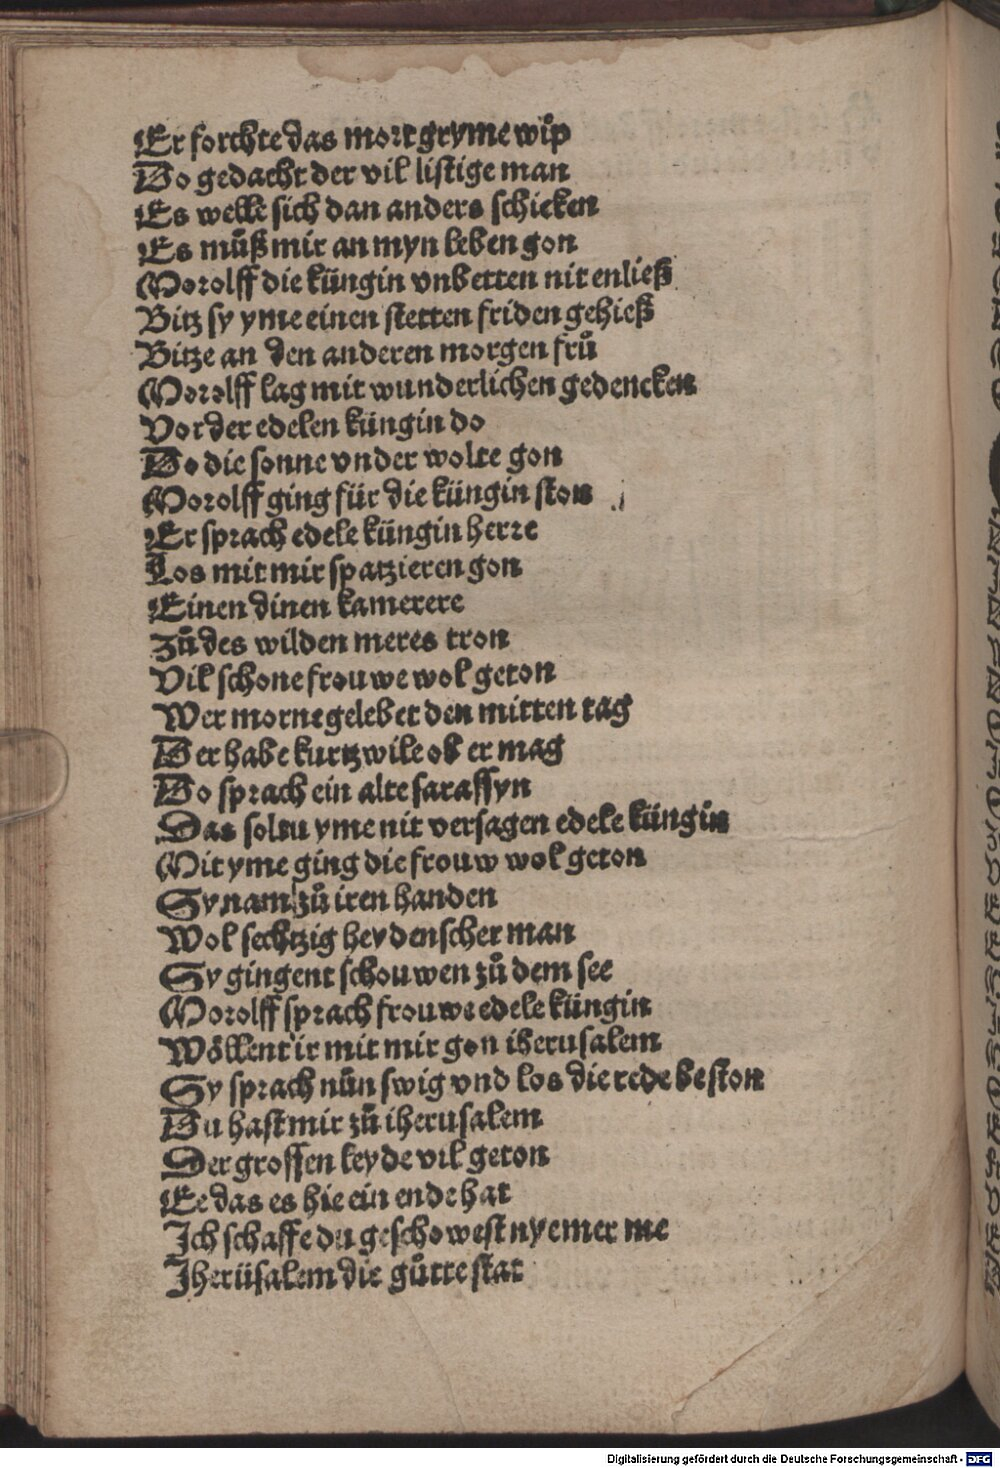 Er forchte das mort gryme wip
Do gedacht der vil listige man
Es welle sich dan anders schicken
Es muͤß mir an myn leben gon
Morolff die küngin vnbetten nit enließ
Bitz sy yme einen stetten friden gehieß
Bitze an den anderen morgen fruͤ
Morolff lag mit wunderlichen gedencken
Vor der edelen küngin do
Do die sonne vnder wolte gon
Morolff ging für die küngin ston
Er sprach edele küngin herre
Los mit mir spatzieren gon
Einen dinen kamerere
Zuͦ des wilden meres tron
Vil schone frouwe wol geton
Wer morne gelebet den mitten tag
Der habe kurtzwile ob er mag
Do sprach ein alte sarassyn
Das soltu yme nit versagen edele küngin
Mit yme ging die frouw wol geton
Sy nam zuͦ iren handen
Wol sechtzig heydenscher man
Sy gingent schouwen zuͦ dem see
Morolff sprach frouwe edele küngin
Woͤllent ir mit mir gon iherusalem
Sy sprach nün swig vnd los die rede beston
Du hast mir zuͦ iherusalem
Der grossen leyde vil geton
Ee das es hie ein ende hat
Ich schaffe du geschowest nyemer me
Jherüsalem die guͦtte stat
Digitalisierung gefördert durch die Deutsche Forschungsgemeinschaft - DFG